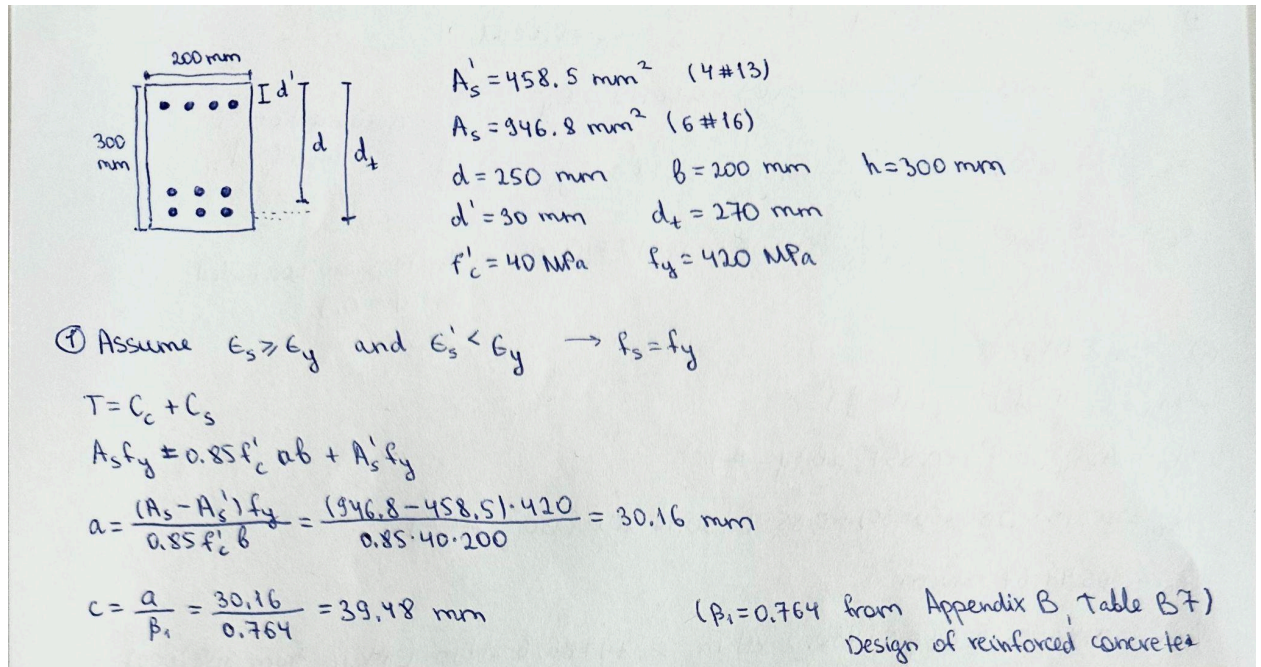 200 mm
300
mm
d'
d
d_t
A_s' = 458.5 mm² (4#13)
A_s = 946.8 mm² (6#16)
d = 250 mm b = 200 mm h = 300 mm
d' = 30 mm d_t = 270 mm
f'_c = 40 MPa f_y = 420 MPa
① Assume ϵ_s ≥ ϵ_y and ϵ_s' < ϵ_y → f_s = f_y
T = C_c + C_s
A_s f_y = 0.85 f'_c ab + A_s' f_y
a = (A_s - A_s') f_y / 0.85 f'_c b = (946.8 - 458.5) · 420 / 0.85 · 40 · 200 = 30.16 mm
c = a / β_1 = 30.16 / 0.764 = 39.48 mm (β_1 = 0.764 from Appendix B, Table B7)
Design of reinforced concrete